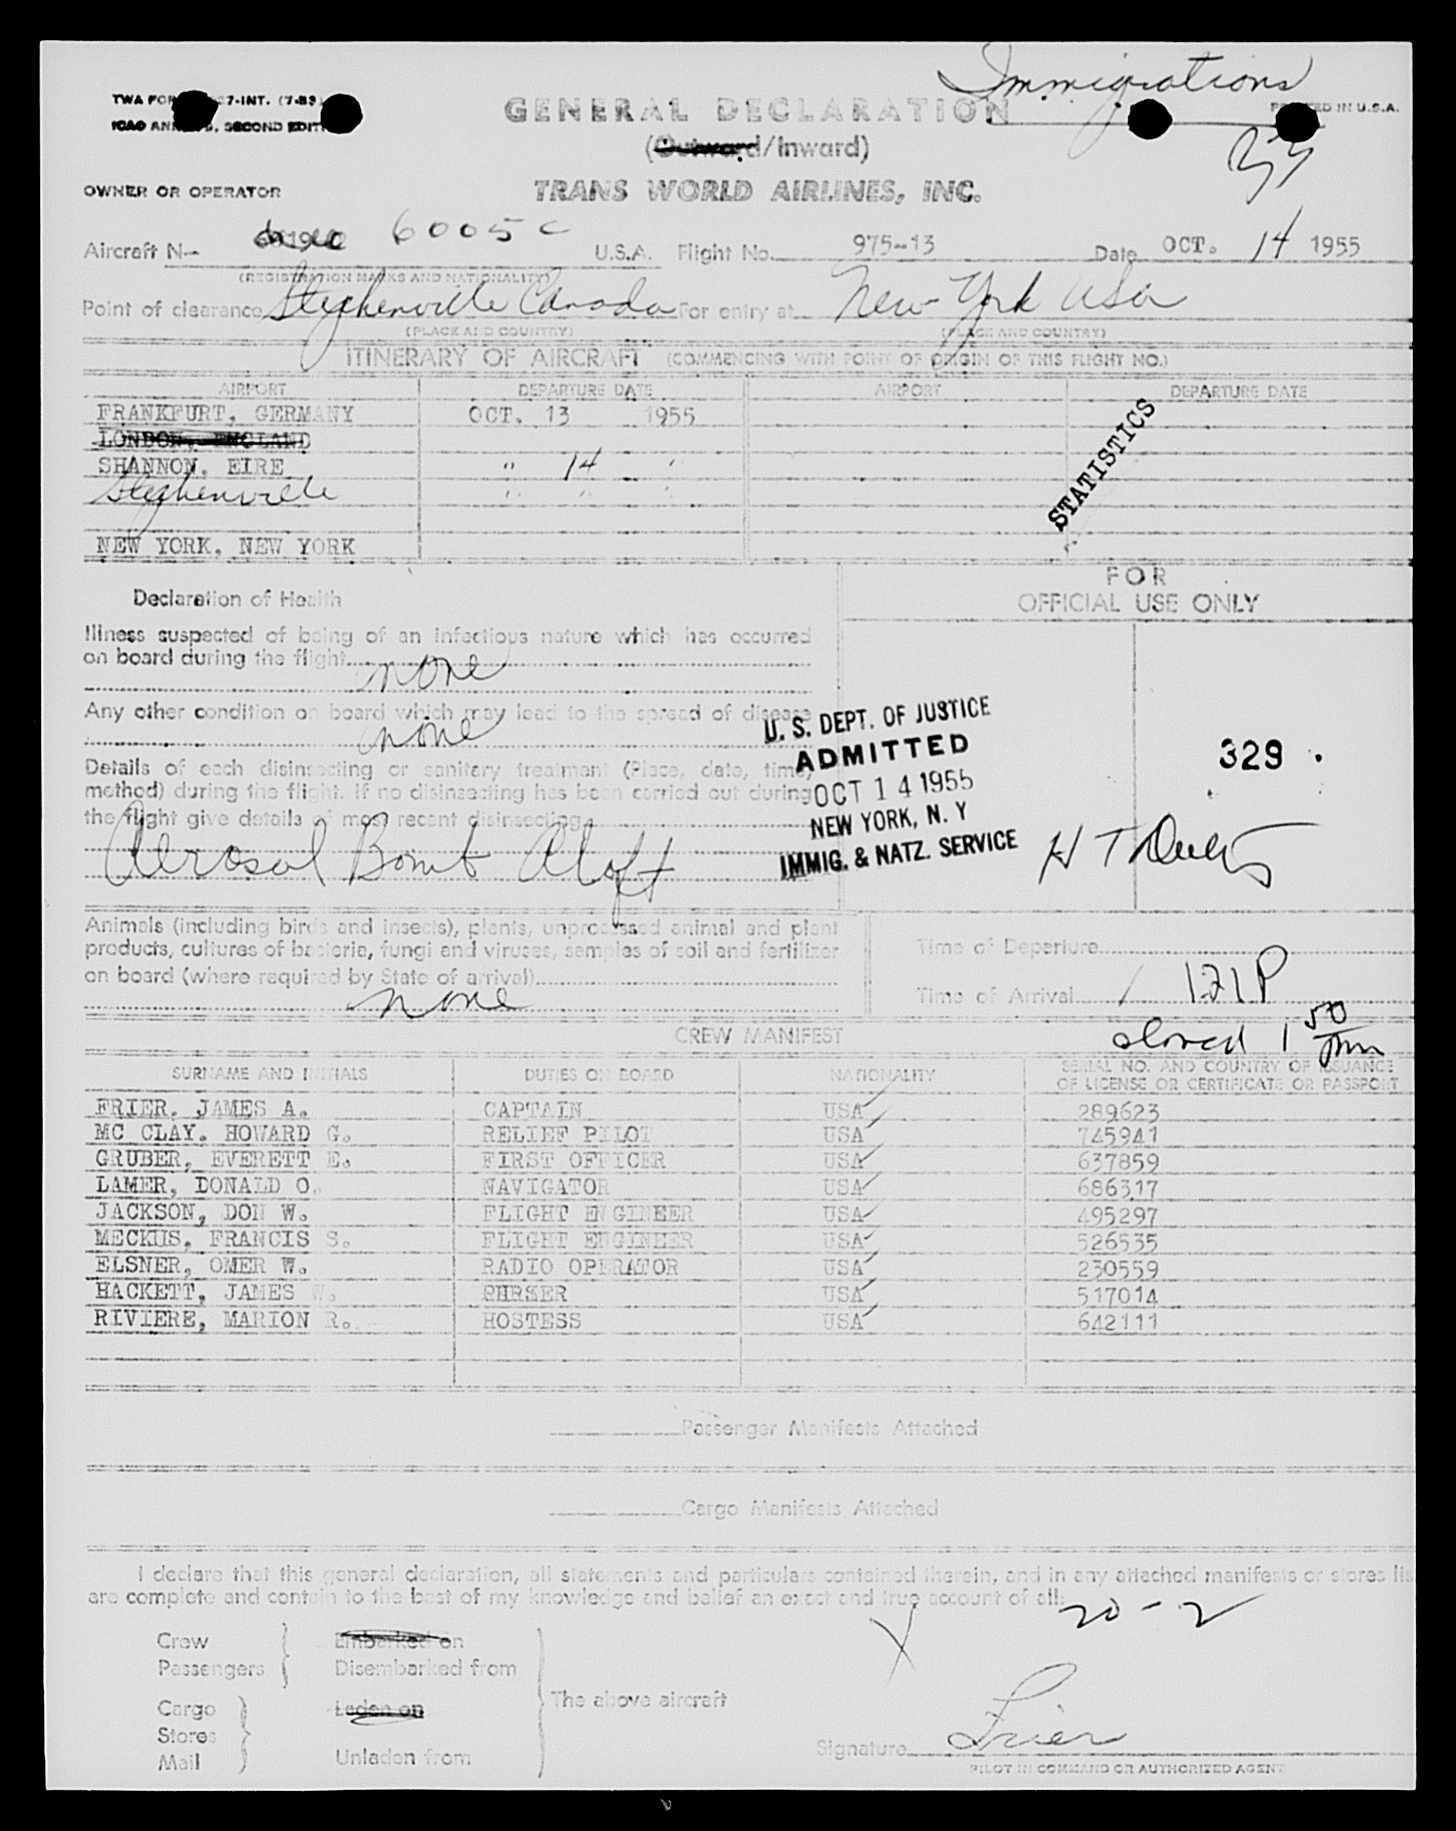 Immigrations
TWA FOR 7-INT. (7-53)
GENERAL DECLARATION
PRINTED IN U.S.A.
ICAO ANNEX 9, SECOND EDITION
(Outward/Inward)
OWNER OR OPERATOR TRANS WORLD AIRLINES, INC.
Aircraft N- 6005 C U.S.A. Flight No. 975-13 Date OCT. 14 1955
(REGISTRATION MARKS AND NATIONALITY)
Point of clearance Stephenville Canada For entry at New York USA
(PLACE AND COUNTRY) (PLACE AND COUNTRY)
ITINERARY OF AIRCRAFT (COMMENCING WITH POINT OF ORIGIN OF THIS FLIGHT NO.)
AIRPORT DEPARTURE DATE AIRPORT DEPARTURE DATE
FRANKFURT, GERMANY OCT. 13 1955
LONDON, ENGLAND
SHANNON, EIRE " 14 '
Stephenville " " "
NEW YORK, NEW YORK
STATISTICS
FOR
OFFICIAL USE ONLY
Declaration of Health
Illness suspected of being of an infectious nature which has occurred
on board during the flight none
Any other condition on board which may lead to the spread of disease
none
Details of each disinsecting or sanitary treatment (Place, date, time,
method) during the flight. If no disinsecting has been carried out during
the flight give details of most recent disinsecting
Aerosol Bomb Aloft
U. S. DEPT. OF JUSTICE
ADMITTED
OCT 14 1955
NEW YORK, N. Y
IMMIG. & NATZ. SERVICE
329
Animals (including birds and insects), plants, unprocessed animal and plant
products, cultures of bacteria, fungi and viruses, samples of soil and fertilizer
on board (where required by State of arrival)
none
Time of Departure
Time of Arrival 121P
CREW MANIFEST
1 50
SURNAME AND INITIALS DUTIES ON BOARD NATIONALITY SERIAL NO. AND COUNTRY OF ISSUANCE
OF LICENSE OR CERTIFICATE OR PASSPORT
FRIER, JAMES A. CAPTAIN USA 289623
MC CLAY, HOWARD G. RELIEF PILOT USA 745941
GRUBER, EVERETT E. FIRST OFFICER USA 637859
LAMER, DONALD O. NAVIGATOR USA 686317
JACKSON, DON W. FLIGHT ENGINEER USA 495297
MECKUS, FRANCIS S. FLIGHT ENGINEER USA 526535
ELSNER, OMER W. RADIO OPERATOR USA 230559
HACKETT, JAMES W. PURSER USA 517014
RIVIERE, MARION R. HOSTESS USA 642111
Passenger Manifests Attached
Cargo Manifests Attached
I declare that this general declaration, all statements and particulars contained therein, and in any attached manifests or stores lis
are complete and contain to the best of my knowledge and belief an exact and true account of all:
20-2
Crew Embarked on
Passengers Disembarked from
X
The above aircraft
Cargo Laden on
Stores
Mail Unladen from
Signature Frier
PILOT IN COMMAND OR AUTHORIZED AGENT